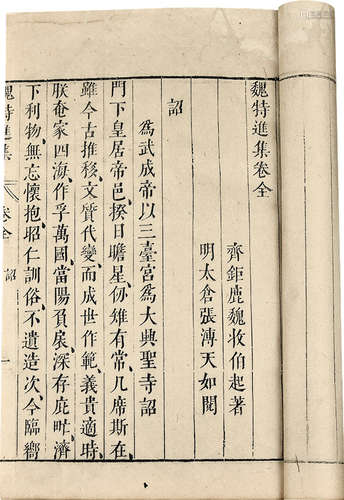 魏特進集卷全
齊鉅鹿魏收伯起著
明太倉張溥天如閱
詔
爲武成帝以三臺宮爲大興聖寺詔
門下皇居帝邑揆日瞻星仞雉有常几席斯在
雖今古推移文質代變而成世作範義貴適時
朕奄家四海作孚萬國當陽負扆深存庇甿濟
下利物無忘懷抱昭仁訓俗不遺造次今臨嚮
魏特進集 卷全 詔 一